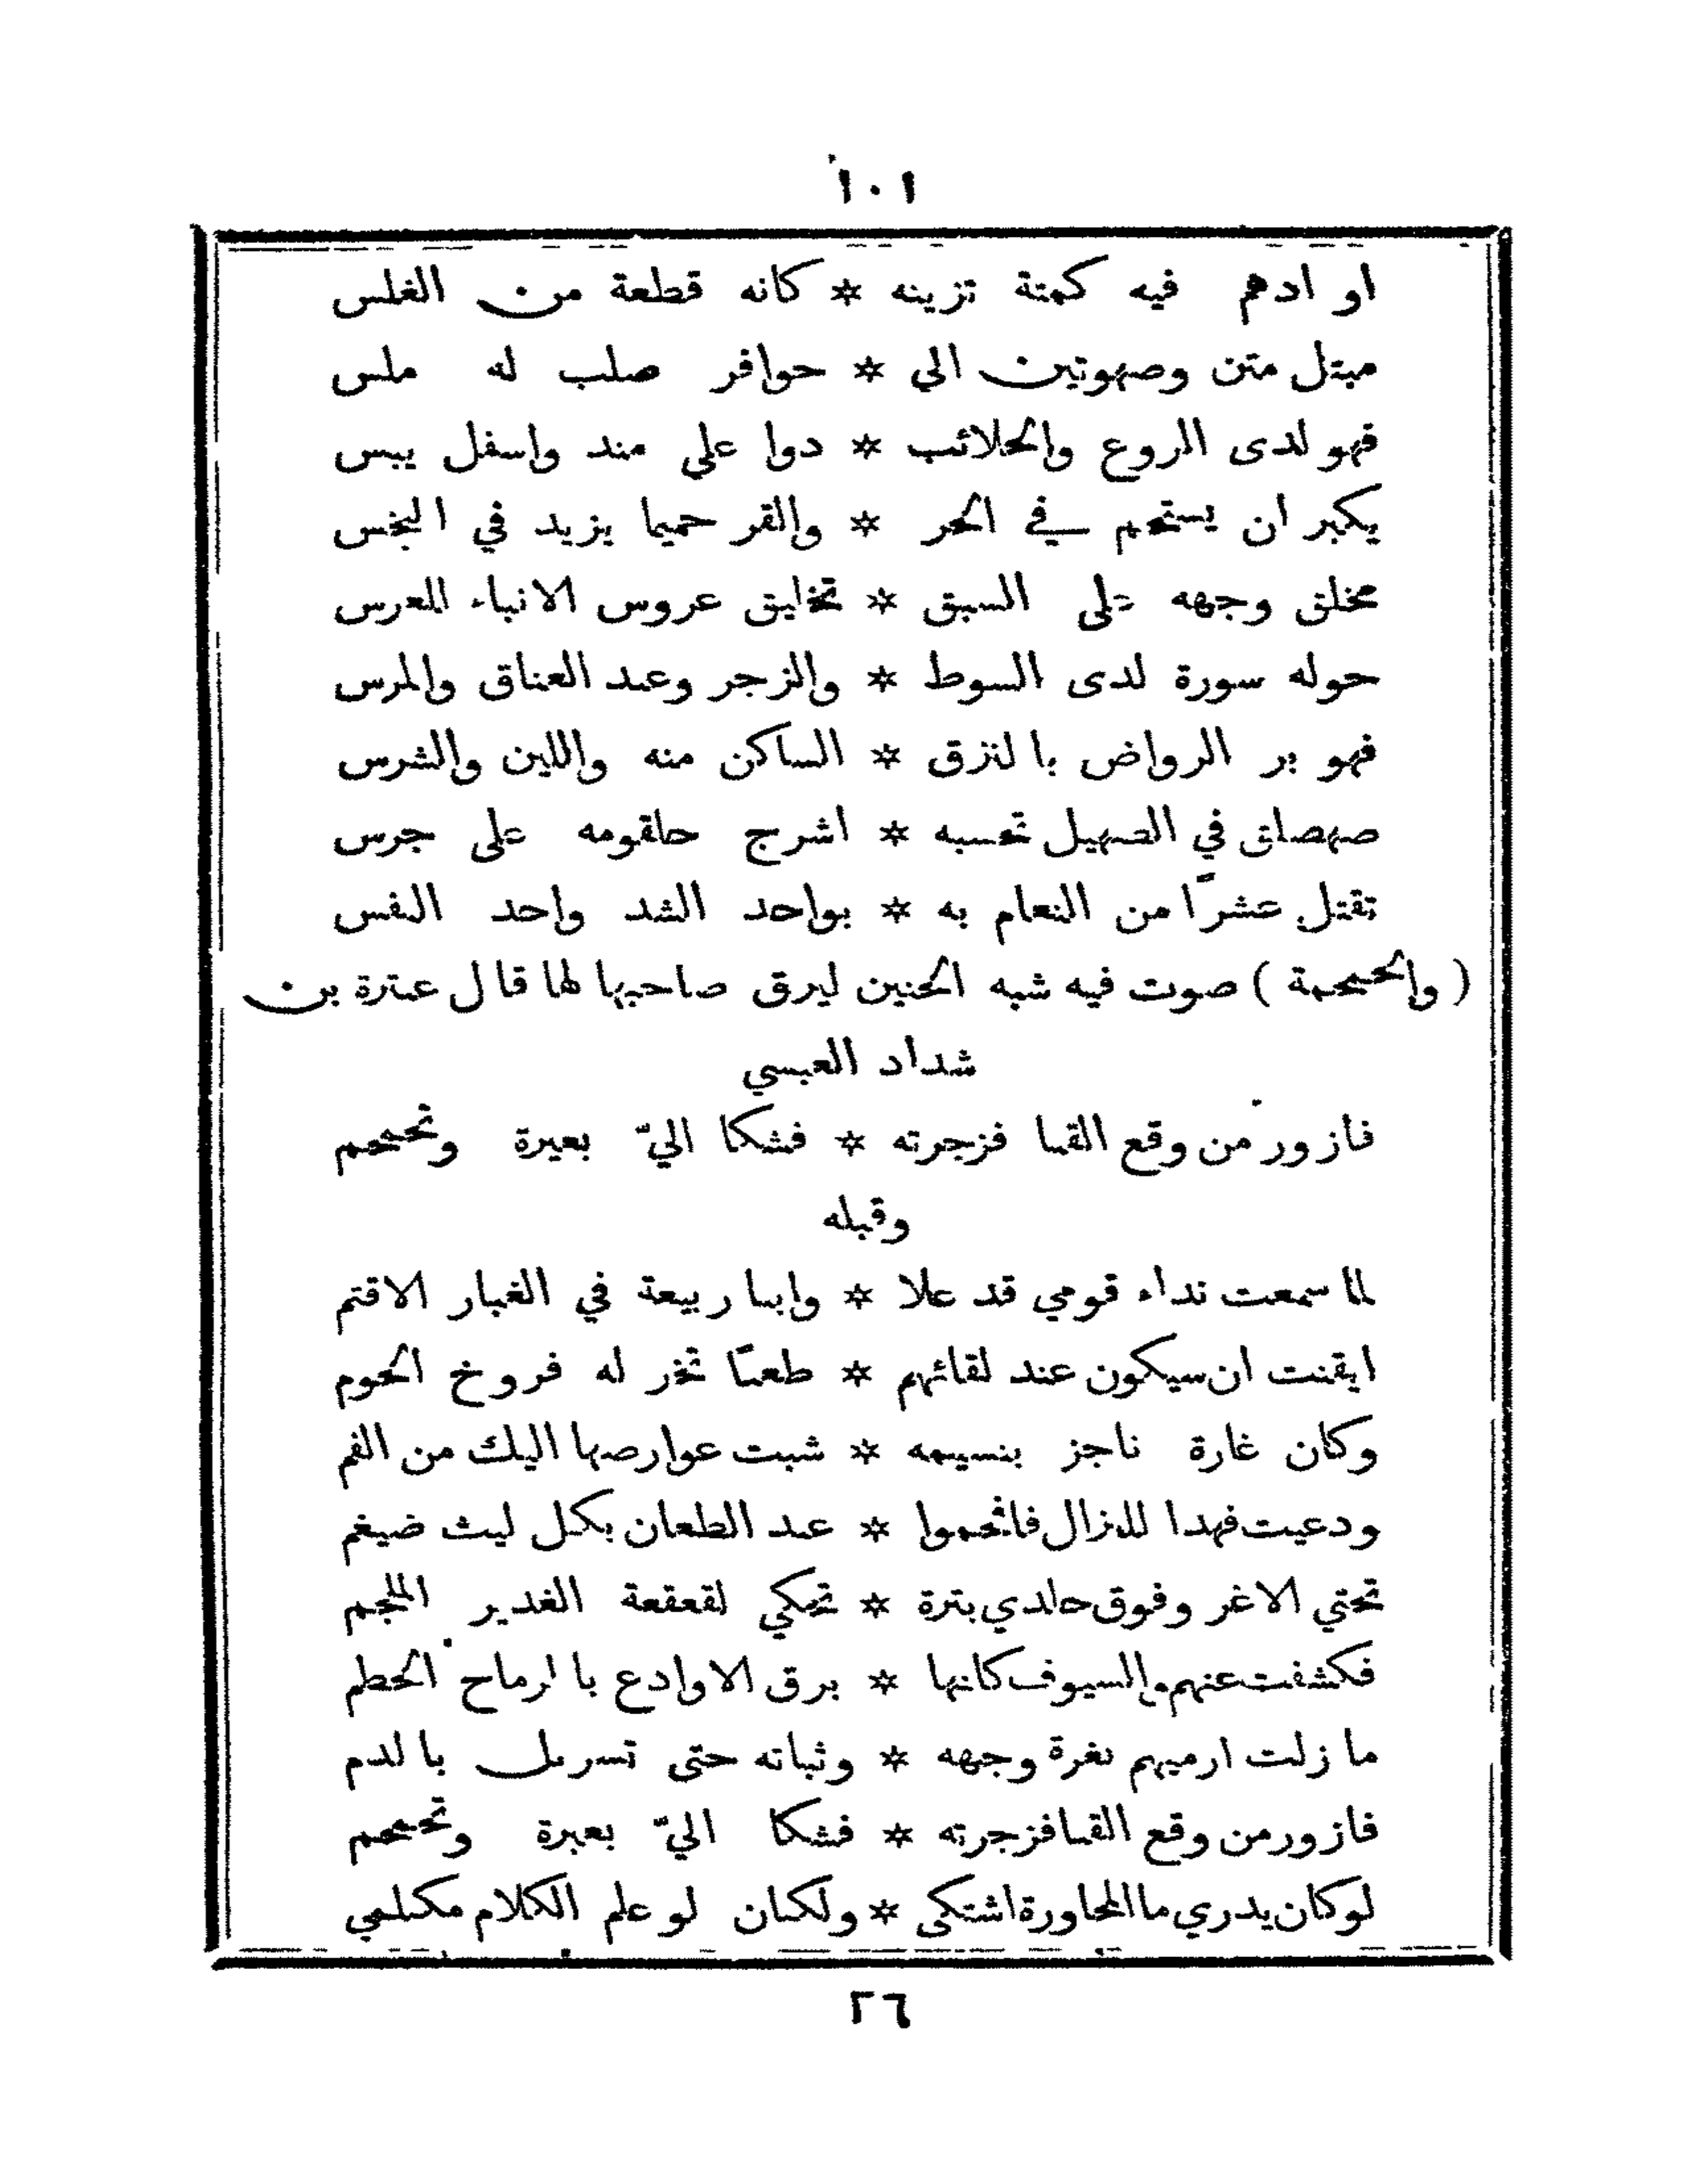 ١٠١
او ادهم فيه كمتة تزينه * كانه قطعة من الغلس
مبتل متن وصهوتين الي * حوافر صلب له ملس
فهو لدى الروع والحلائب * دوا علي مند واسفل يبس
يكبر ان يستحم في الحر * والقر حميما يزيد في البخس
مخلق وجهه على السبق * تخليق عروس الانباء للعرس
حوله سورة لدى السوط * والزجر وعند العناق والمرس
فهو بر الرواض بالنزق * الساكن منه واللين والشرس
صهصلق في الصهيل تحسبه * اشرج حلقومه على جرس
تقتل عشرًا من النعام به * بواحد الشد واحد النفس
( والحمحمة ) صوت فيه شبه الحنين ليرق صاحبها لها قال عنترة بن
شداد العبسي
فازور من وقع القنا فزجرته * فشكا اليّ بعبرة وتحمحم
وقبله
لما سمعت نداء قومي قد علا * وابنا ربيعة في الغبار الاقتم
ايقنت ان سيكون عند لقائهم * طعنًا تخر له فروخ الحوم
وكان غارة ناجز بنسيمه * شبت عوارضها اليك من الفم
ودعيت فهدا للنزال فاقحموا * عند الطعان بكل ليث ضيغم
تحتي الاغر وفوق جلدي بترة * تحكي لقعقعة الغدير الملجم
فكشفت عنهم والسيوف كانها * برق الاوادع بالرماح الحطم
ما زلت ارميهم بغرة وجهه * وثباته حتى تسربل بالدم
فازور من وقع القنا فزجرته * فشكا اليّ بعبرة وتحمحم
لو كان يدري ما المحاورة اشتكى * ولكان لو علم الكلام مكلمي
٢٦